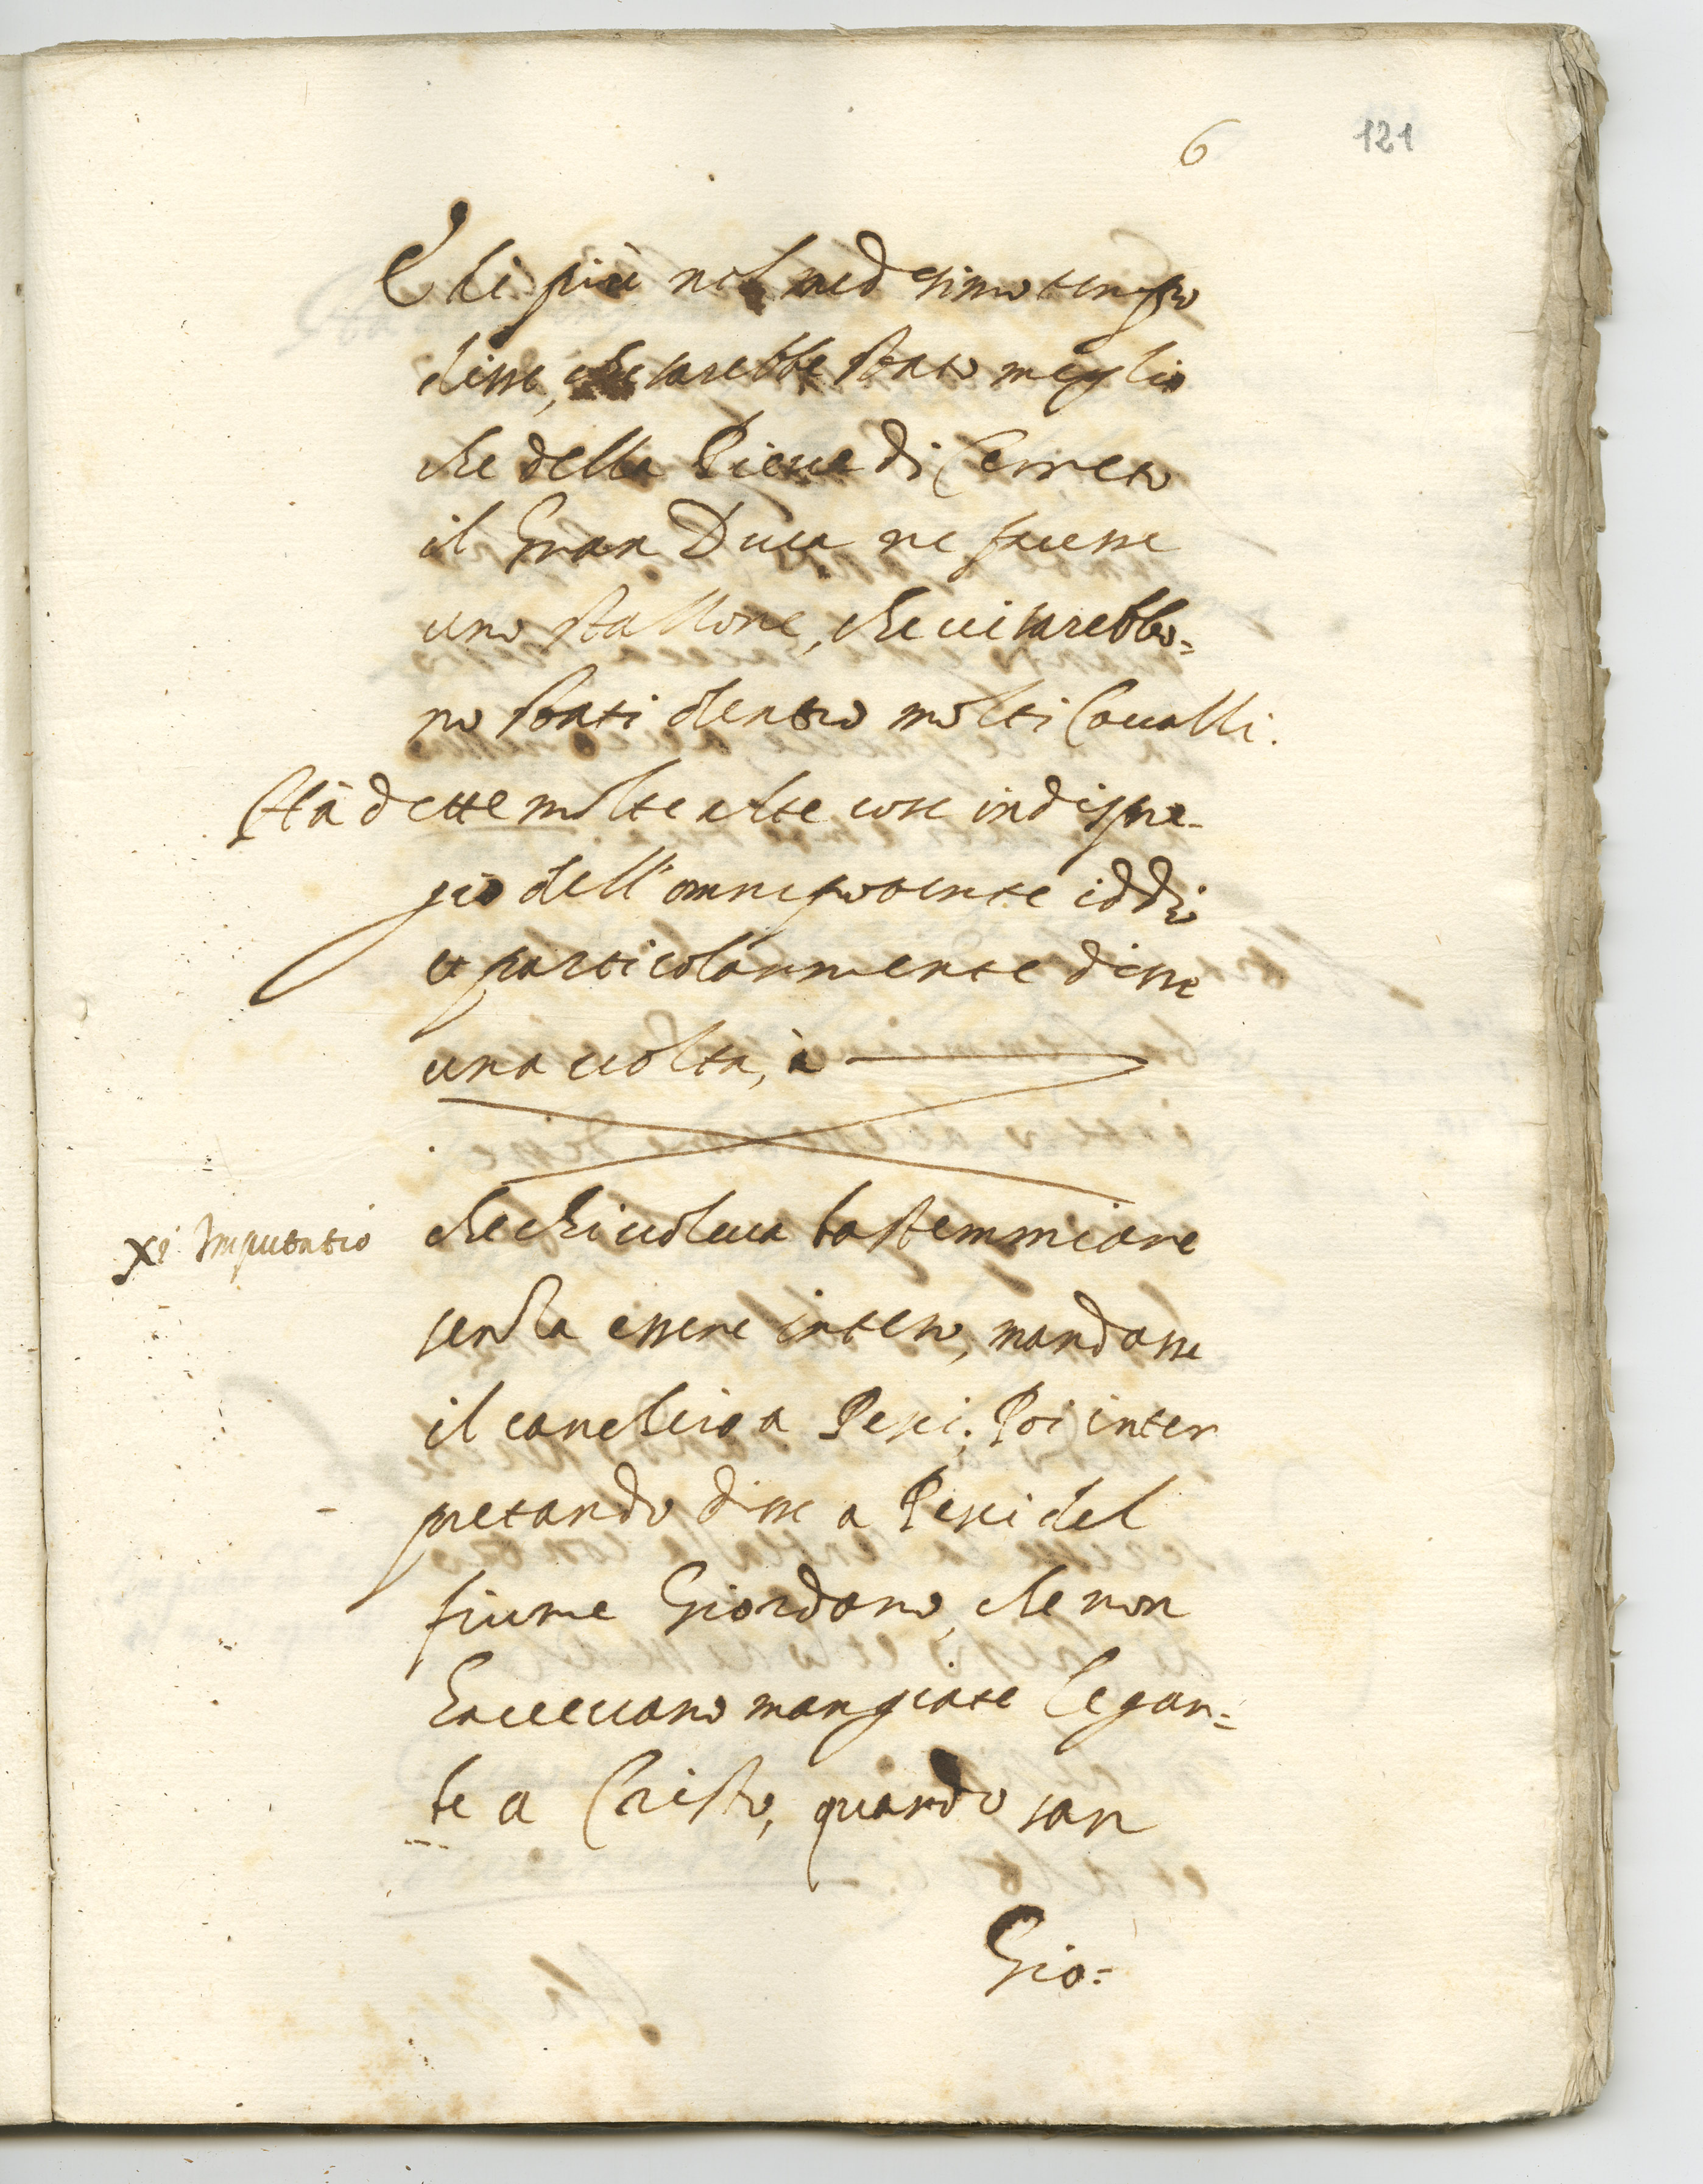 6 121
E di più nel medesimo tempo
disse, che sarebbe stato meglio
che della Pieve di Cerreto
il Gran Duca ne facesse
uno stallone, che vi sarebbo=
no stati dentro molti Cavalli.
Hà dette molte altre cose in dispre-
gio dell'omnipotente iddio
et particolarmente disse
una volta, à
xi Imputatio
che chi voleva bastemmiare
senza essere inteso, mandasse
il canchero a Pesci; Poi inter
pretando disse a Pesci del
fiume Giordano, che non
haveevano mangiate le gam=
be a Cristo, quando san
Gio=